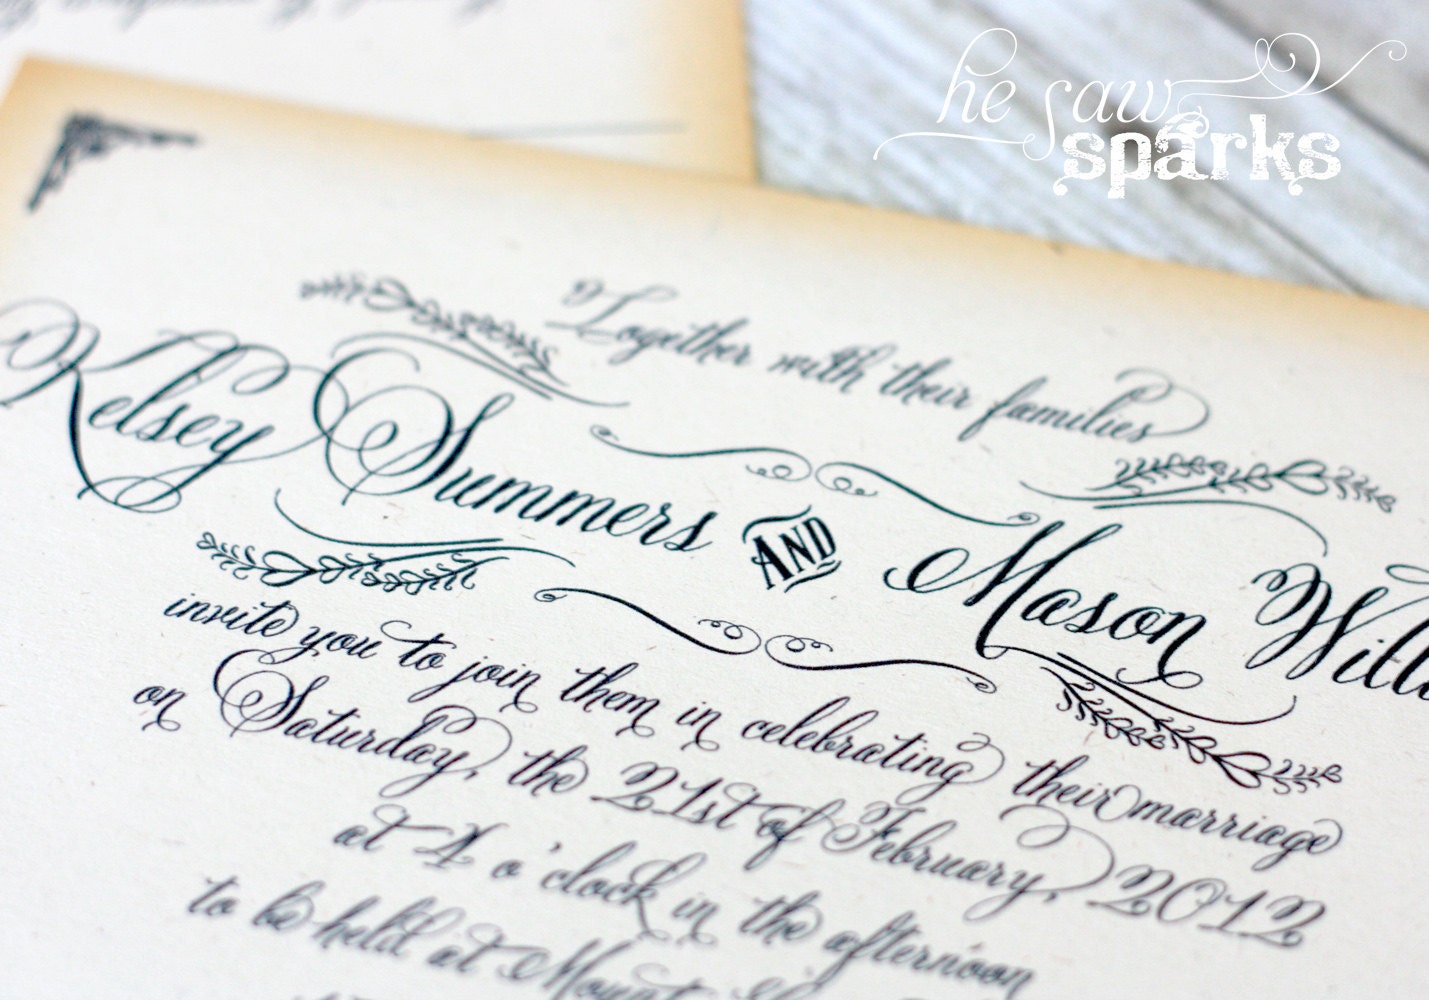 he saw
sparks
Together with their families
Kelsey Summers AND Mason
invite you to join them in celebrating their marriage
on Saturday, the 21st of February, 2012
at 4 o'clock in the afternoon
to be held at Mount